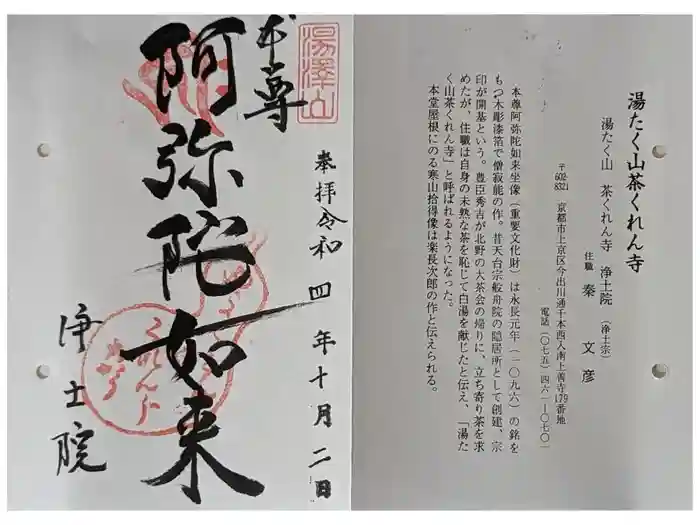 湯たく山茶くれん寺
湯たく山 茶くれん寺 浄土院 (浄土宗)
住職 秦 文彦
〒602-8321 京都市上京区今出川通千本西入南上善寺179番地
電話(〇七五)四六一ー〇七〇一
本尊阿弥陀如来坐像(重要文化財)は永長元年(一〇九六)の銘を
もつ木彫漆箔で僧寂能の作。昔天台宗般舟院の隠居所として創建、宗
印が開基という。豊臣秀吉が北野の大茶会の帰りに、立ち寄り茶を求
めたが、住職は自身の未熟な茶を恥じて白湯を献じたと伝え、「湯た
く山茶くれん寺」と呼ばれるようになった。
本堂屋根にのる寒山拾得像は楽長次郎の作と伝えられる。
湯澤山
奉拝 令和四年十月二日
本尊
阿弥陀如来
浄土院